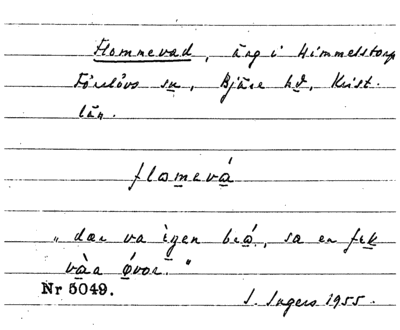 Flommevad, äng i Himmelstorp
Förslövs sn, Bjäre hd, Krist.
län.
flomevá
"dær va ìgen brá, sa en fek
vàa øvor."
Nr 5049.
I. Ingers 1955.